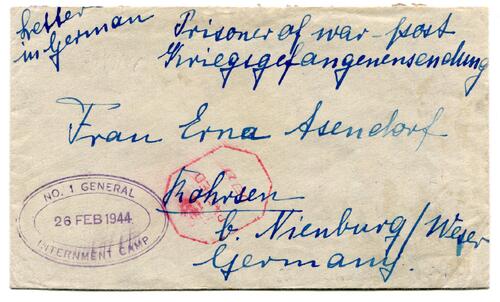 Letter
in German
Prisoner of war-post
Kriegsgefangenensendung
Frau Erna Asendorf
Rohrsen
b. Nienburg/Weser
Germany.
NO. 1 GENERAL
26 FEB 1944
INTERNMENT CAMP